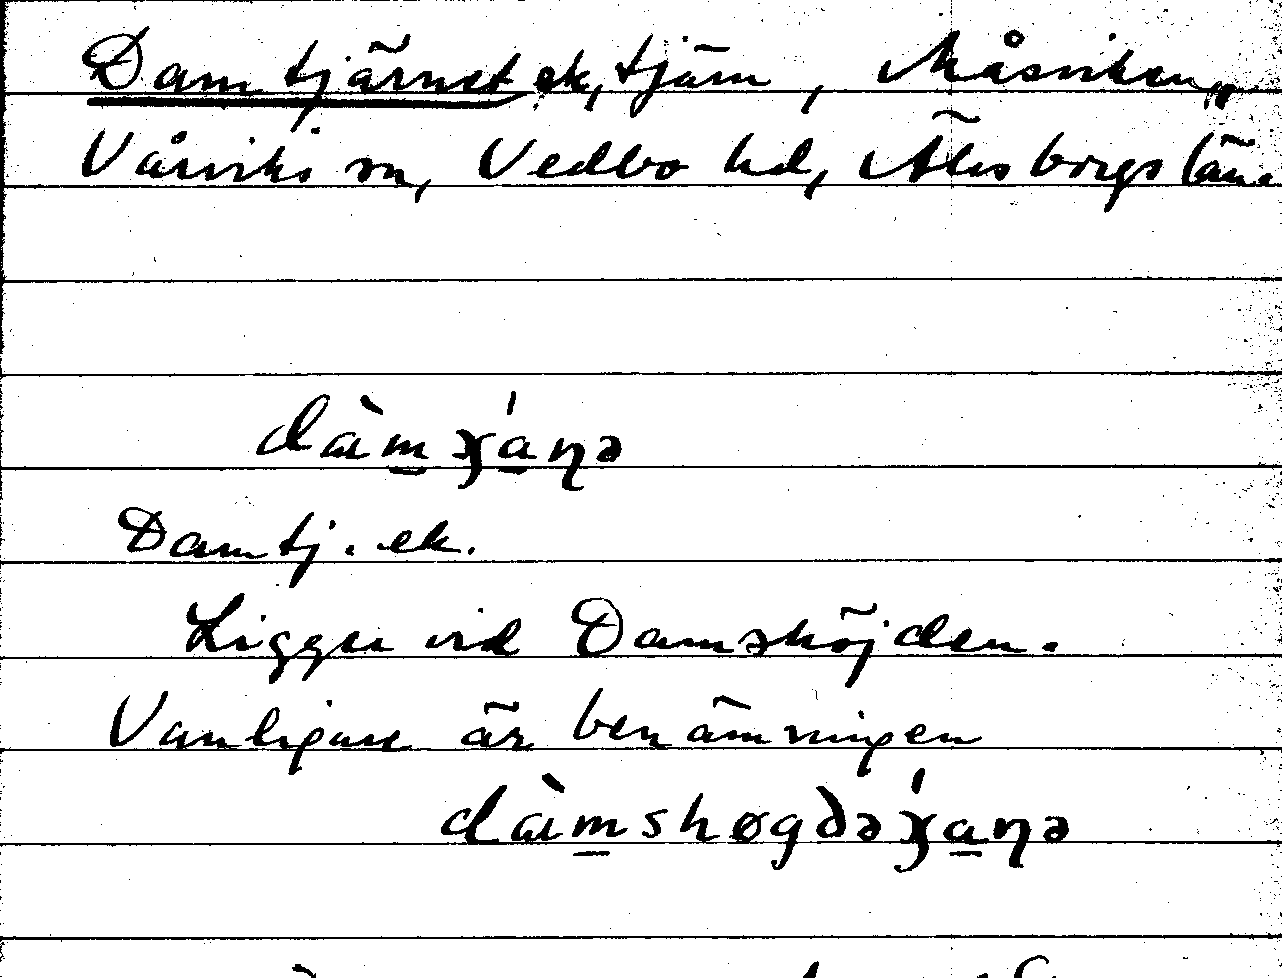 Damtjärnet ek, tjärn, Måsviken,,
Vårviks sn, Vedbo hd, Älvsborgs län.
dàm̲ ɣ́a̲ɳə
Damtj. ek.
Ligger vid Damshöjden.
Vanligare är benämningen
dàm̲shøgdəɣ́a̲ɳə